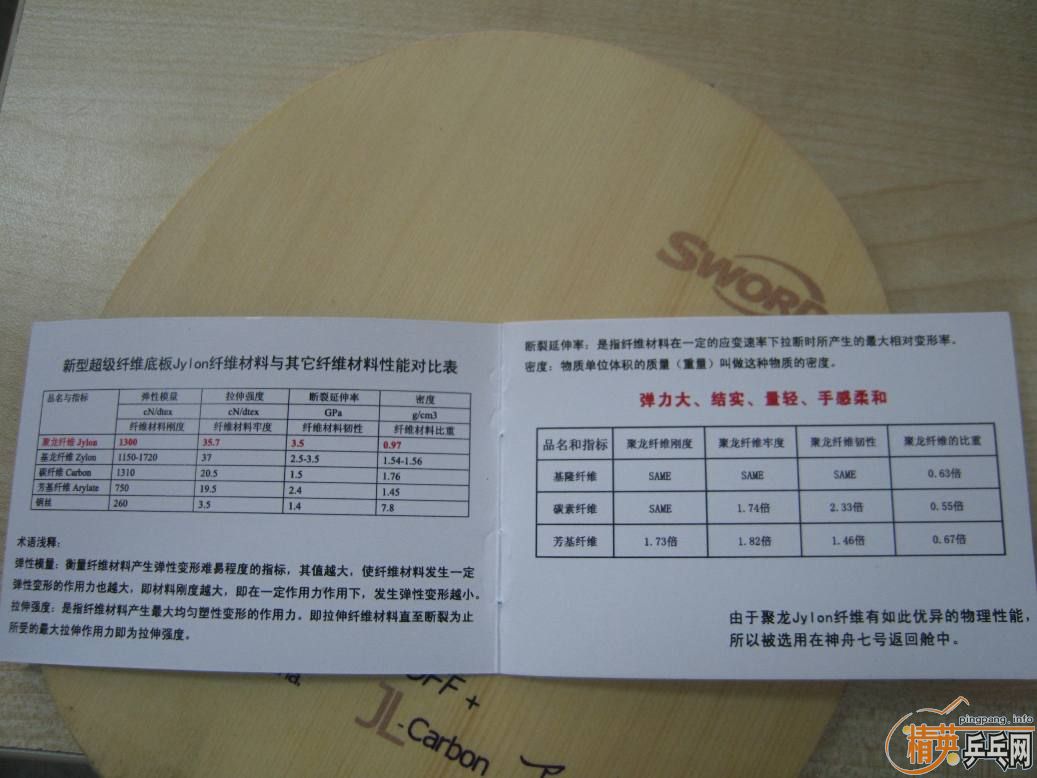 SWORD
新型超级纤维底板Jylon纤维材料与其它纤维材料性能对比表
品名与指标 弹性模量 拉伸强度 断裂延伸率 密度
cN/dtex cN/dtex GPa g/cm3
纤维材料刚度 纤维材料牢度 纤维材料韧性 纤维材料比重
聚龙纤维 Jylon 1300 35.7 3.5 0.97
基龙纤维 Zylon 1150-1720 37 2.5-3.5 1.54-1.56
碳纤维 Carbon 1310 20.5 1.5 1.76
芳基纤维 Arylate 750 19.5 2.4 1.45
钢丝 260 3.5 1.4 7.8
术语浅释：
弹性模量：衡量纤维材料产生弹性变形难易程度的指标，其值越大，使纤维材料发生一定
弹性变形的作用力也越大，即材料刚度越大，即在一定作用力作用下，发生弹性变形越小。
拉伸强度：是指纤维材料产生最大均匀塑性变形的作用力。即拉伸纤维材料直至断裂为止
所受的最大拉伸作用力即为拉伸强度。
断裂延伸率：是指纤维材料在一定的应变速率下拉断时所产生的最大相对变形率。
密度：物质单位体积的质量（重量）叫做这种物质的密度。
弹力大、结实、量轻、手感柔和
品名和指标 聚龙纤维刚度 聚龙纤维牢度 聚龙纤维韧性 聚龙纤维的比重
基隆纤维 SAME SAME SAME 0.63倍
碳素纤维 SAME 1.74倍 2.33倍 0.55倍
芳基纤维 1.73倍 1.82倍 1.46倍 0.67倍
由于聚龙Jylon纤维有如此优异的物理性能，
所以被选用在神舟七号返回舱中。
OFF +
JL-Carbon
pingpang.info
精英乒乓网